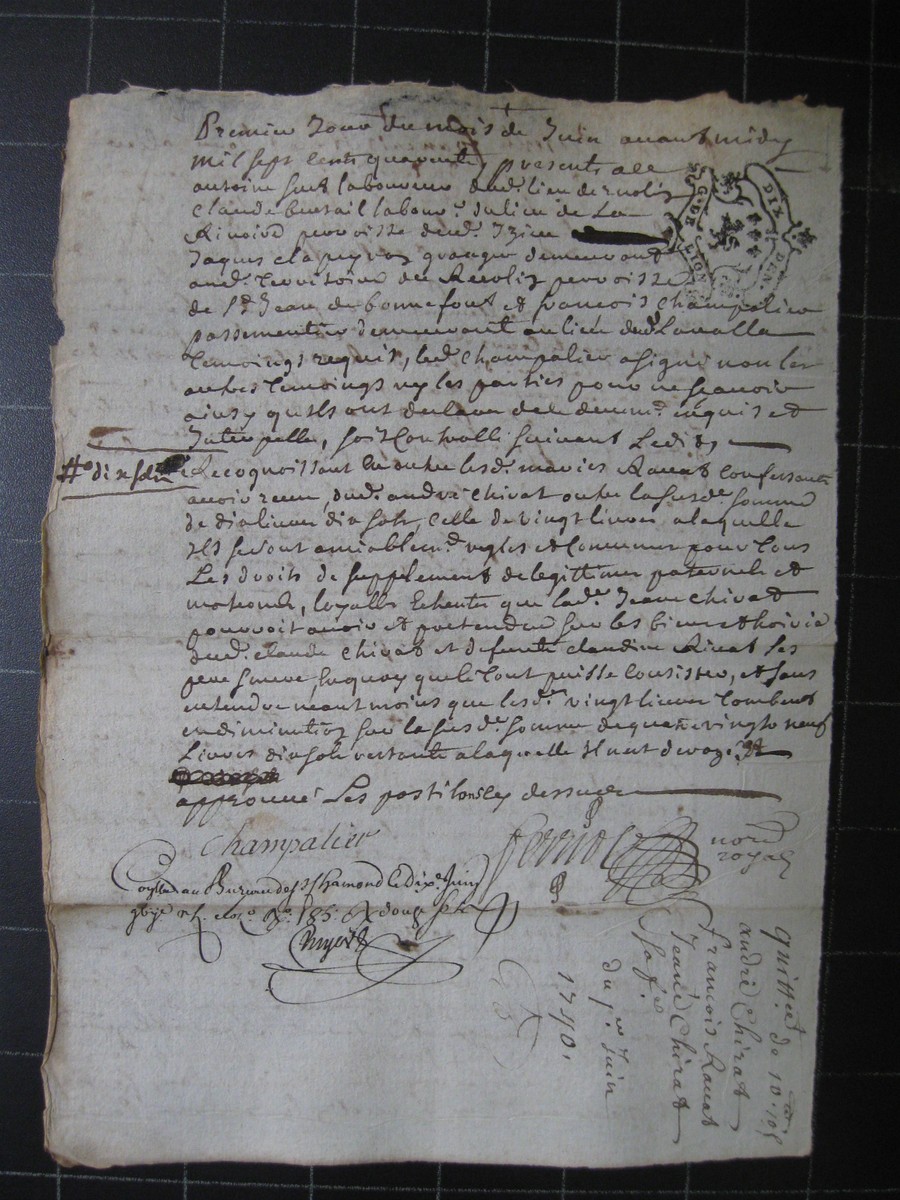 Premier Jour du mois de Juin avant midy
mil sept cents quarente, presents a ce
antoine laboureur dud. lieu de
Claude labour.r du lieu de La
parroisse dud. Izieu
Jaques clapeyron granger demeurant
aud. Territoire de parroisse
de St Jean de bonnefont et francois Champalier
passementier demeurant au lieu de Lavalla
Temoings requis, led. Champalier a signé non les
autres Temoings ny les parties pour ne sçavoir
ainsy qu'ils ont declaré de ce deuem.t enquis et
Interpellé, soit Controllé suivant L'edit,
# dix sols
Recognoissant En outre lesd. mariés Ravat Confessants
avoir receu dud. andré chirat outre la susd.e somme
de dix livres dix sols, celle de vingt livres a laquelle
Ils se sont amiablem.t reglés et Convenus pour Tous
Les droits de supplement de legittimes paternels et
maternels, loyalles Echeutes que lad.e Jeane Chirat
pourroit avoir et pretendre sur les biens et hoirie
dud. claude Chirat et defunte claudine Rivat Les
pere & mere, en quoy que le tout puisse consister, et sans
entendre neantmoins que lesd.s vingt livres Tombent
en diminution sur la susd.e somme de quatrevingts neuf
Livres dix sols restante a laquelle
approuvé Les postilles cy dessus
Champalier
Ferriol no.re
royal
au Bureau de St Chamond Le Dix.e Juin
douze sols
Quitt.ce de 10 l. 10 s
andré Chirat
francois Ravat
Jeane Chirat
sa f.e
du p.er Juin
1740.